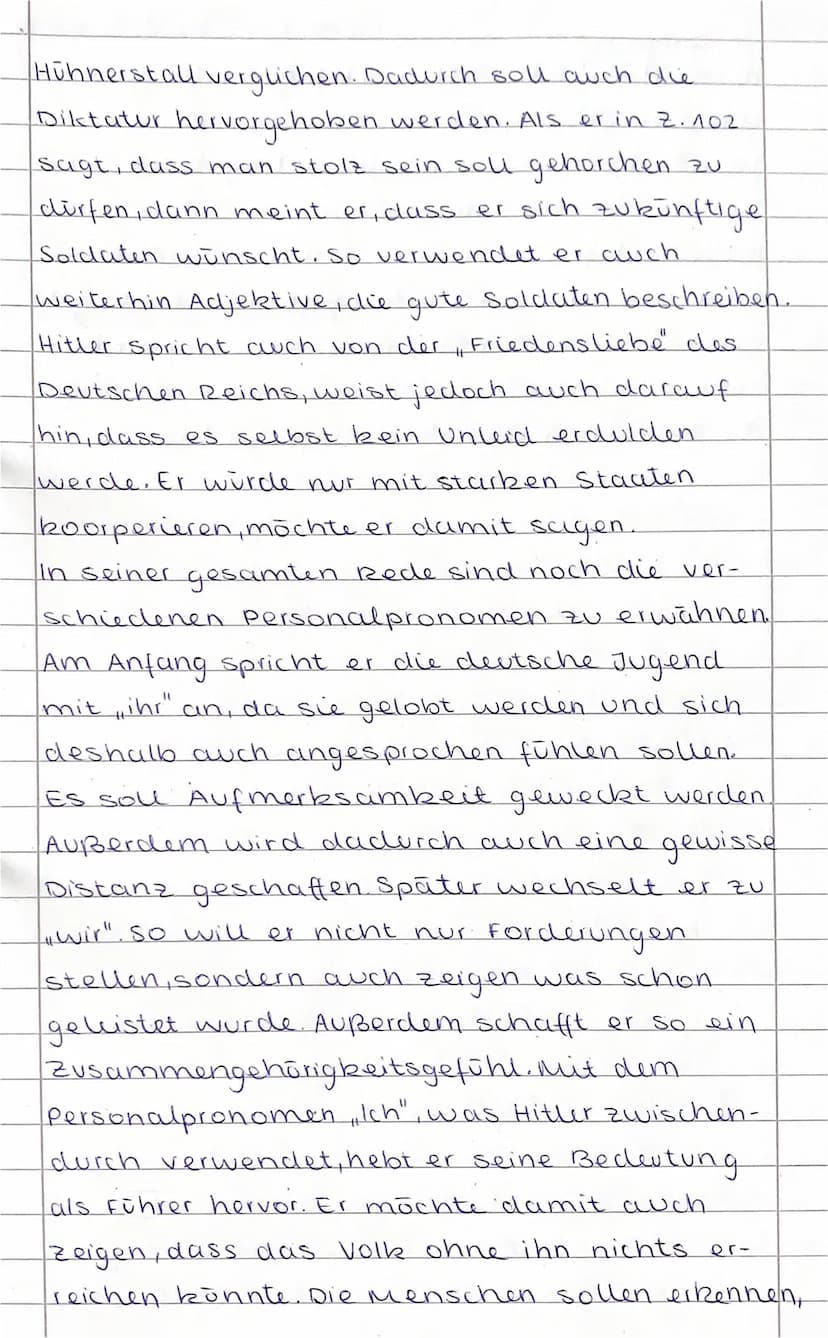 Hühnerstall verglichen. Dadurch soll auch die
Diktatur hervorgehoben werden. Als er in Z. 102
sagt, dass man stolz sein soll gehorchen zu
dürfen, dann meint er, dass er sich zukünftige
Soldaten wünscht. So verwendet er auch
weiterhin Adjektive, die gute Soldaten beschreiben.
Hitler spricht auch von der „Friedensliebe" des
Deutschen Reichs, weist jedoch auch darauf
hin, dass es selbst kein Unleid erdulden
werde. Er würde nur mit starken Staaten
koorperieren, möchte er damit sagen.
In seiner gesamten Rede sind noch die ver-
schiedenen Personalpronomen zu erwähnen.
Am Anfang spricht er die deutsche Jugend
mit „ihr" an, da sie gelobt werden und sich
deshalb auch angesprochen fühlen sollen.
Es soll Aufmerksamkeit geweckt werden.
Außerdem wird dadurch auch eine gewisse
Distanz geschaffen. Später wechselt er zu
„wir". So will er nicht nur Forderungen
stellen, sondern auch zeigen was schon
geleistet wurde. Außerdem schafft er so ein
Zusammengehörigkeitsgefühl. Mit dem
Personalpronomen „Ich", was Hitler zwischen-
durch verwendet, hebt er seine Bedeutung
als Führer hervor. Er möchte damit auch
zeigen, dass das Volk ohne ihn nichts er-
reichen könnte. Die Menschen sollen erkennen,